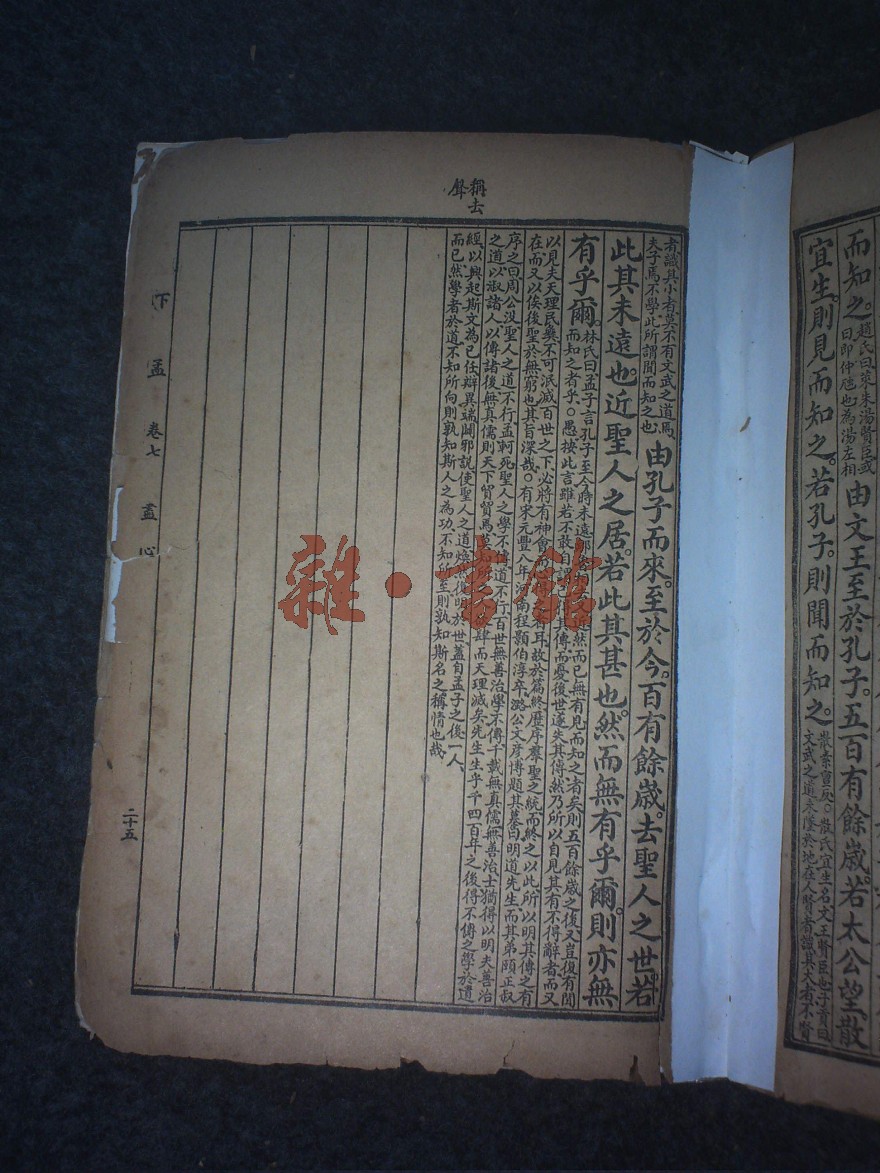 而知之。趙氏曰萊朱湯賢臣或
曰即仲虺也為湯左相
由文王至於孔子。五百有餘歲。若太公望散
宜生。則見而知之。若孔子。則聞而知之。散素亶反。○散氏宜生名文王賢臣也子貢曰
文武之道未墜於地在人賢者識其大者不賢
者識其小者莫不有文武之道焉
夫子焉不學此所謂聞而知之也
由孔子而來。至於今。百有餘歲。去聖人之世。若
此其未遠也。近聖人之居。若此其甚也。然而無有乎爾。則亦無
有乎爾。林氏曰孟子言孔子至今時未遠
然而已無有見而知之者矣則五百餘歲之後又豈復有聞
而知之者乎。○愚按此言雖若不敢自謂
其傳而憂後世遂失其傳然乃所以自見其有不得辭者而又
以見夫天理民彝不可泯滅百世之下必將有神會
耳故於篇終歷序羣聖之統而終之以此所以明其傳之有
在而又以俟後聖於無窮也其旨深哉。○有宋元豐八年河南程顥伯淳卒潞公文彥博題其墓曰明道先生而其弟頤正叔
序之曰周公沒聖人之道不行孟軻死聖人之學不傳道不行百世無善治學不傳千載無真儒無善治士猶得以明夫善治
之道以淑諸人以傳諸後無真儒則天下貿貿焉莫知所
肆而天理滅矣先生生乎千四百年之後得不傳之學於遺
經以興起斯文為已任辯異端闢邪說使聖人之道煥然復明於世蓋自孟子之後一人
而已然學者於道不知所向則孰知斯人之為功不知所至則孰知斯名之稱情也哉
稱去
聲
下孟
卷七
盡心
二十五
雜·書館